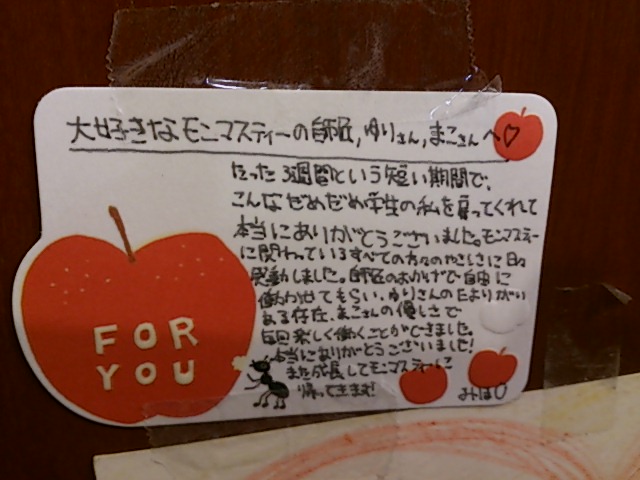 大好きなモンマスティーの師匠,ゆりさん,まこさんへ♡
たった3週間という短い期間で、
こんなだめだめ学生の私を雇ってくれて
本当にありがとうございました。モンマスティー
に関わっているすべての方々のやさしさに日々
感動しました。師匠のおかげで自由に
働かせてもらい、ゆりさんのたよりがい
ある存在、まこさんの優しさで
毎日楽しく働くことができました。
本当にありがとうございました!
また成長してモンマスティーに
帰ってきます!
みほ
FOR
YOU